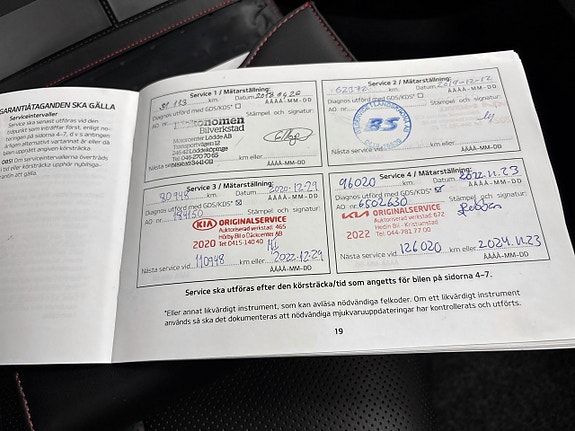 GARANTIÅTAGANDEN SKA GÄLLA
Serviceintervaller
Service ska senast utföras vid den
tidpunkt som inträffar först, enligt no-
teringen på sidorna 4-7, d v s antingen
OBS! Om serviceintervallerna överträds
Service 1 / Mätarställning:
km. Datum
Diagnos utförd med GDS/KDS* ☐ ÅÅÅÅ-MM-DD
AO nr. Stämpel och signatur:
nomen
Bilverkstad
Löddeköpinge
Tel 046-270 70 65
km eller
ÅÅÅÅ-MM-DD
Service 2 / Mätarställning:
62372 km. Datum 2019-12-12
Diagnos utförd med GDS/KDS* ☐ ÅÅÅÅ-MM-DD
AO nr. Stämpel och signatur:
BS
Nästa service vid km eller
ÅÅÅÅ-MM-DD
Service 3 / Mätarställning:
80948 km. Datum 2020-12-29
Diagnos utförd med GDS/KDS* ☒ ÅÅÅÅ-MM-DD
AO nr. Stämpel och signatur:
KIA ORIGINALSERVICE
Auktoriserad verkstad: 465
Hörby Bil o Däckcenter AB
2020 Tel 0415 140 40
Nästa service vid 110948 km eller 2022-12-29
ÅÅÅÅ-MM-DD
Service 4 / Mätarställning:
96020 km. Datum 2022.11.23
Diagnos utförd med GDS/KDS* ☒ ÅÅÅÅ-MM-DD
AO nr. 6502630 Stämpel och signatur:
KIA ORIGINALSERVICE
Auktoriserad verkstad: 672
Hedin Bil - Kristianstad
2022 Tel. 044-781 77 00
Nästa service vid 126020 km eller 2024.11.23
ÅÅÅÅ-MM-DD
Service ska utföras efter den körsträcka/tid som angetts för bilen på sidorna 4-7.
*Eller annat likvärdigt instrument, som kan avläsa nödvändiga felkoder. Om ett likvärdigt instrument
används så ska det dokumenteras att nödvändiga mjukvaruuppdateringar har kontrollerats och utförts.
19